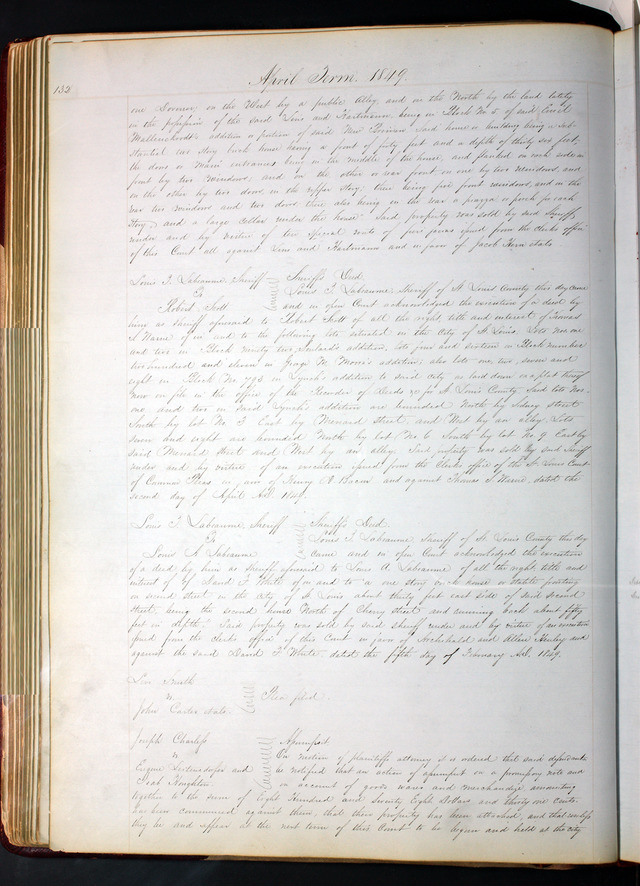 132
April Term 1849
on the West by a public Alley and on the North by the land lately
in the possession of the said Lins and Hartmann being in Block No 5 of said Emil
Mallinckrodt's addition a portion of said New Bremen Said house or building being a sub-
stantial two story brick house having a front of fifty feet and a depth of thirty six feet,
the door or main entrance being in the middle of the house, and flanked on each side in
front by two windows, and on the other or rear front on one by two windows and
on the other by two doors in the upper story there being five front windows, and in the
rear two windows and two doors there also being in the rear a piazza or porch for each
Story; and a large cellar under the house Said property was sold by said Sheriff
under and by virtue of two special writs of fieri facias issued from the Clerks office
of this Court all against Lins and Hartmann and in favor of Jacob Horn et als
Louis T. Labeaume, Sheriff Sheriff's Deed
To Louis T. Labeaume, Sheriff of St Louis County this day came
Robert Scott and in open Court acknowledged the execution of a deed by
him as Sheriff aforesaid to Robert Scott of all the right title and interest of Thomas
S. Warne of in and to the following lots situated in the City of St Louis. Lots No. one
and two in Block ninety two, addition, lots four and sixteen in Block number
two hundred and eleven in addition, also lots one, two, seven and
eight in Block No in Lynch's addition to said city as laid down on a plat thereof
now on file in the office of the Recorder of Deeds &c for St Louis County. Said lots Nos.
one and two in said Lynch's addition are bounded North by Sidney street
South by lot No 3 East by Menard Street, and West by an alley. Lots
seven and eight are bounded North by lot No 6 South by lot No 9 East by
said Menard Street and West by an alley. Said property was sold by said Sheriff
under and by virtue of an execution issued from the Clerks office of the St. Louis Court
of Common Pleas in favor of Henry D. Bacon and against Thomas S. Warne, dated the
second day of April A.D. 1849.
Louis T. Labeaume, Sheriff Sheriff's Deed
To Louis T. Labeaume Sheriff of St. Louis County this day
Louis A. Labeaume came and in open Court acknowledged the execution
of a deed by him as Sheriff aforesaid to Louis A. Labeaume of all the right, title and
interest of David F. White of in and to a one story house or stable fronting
on second street in the city of St Louis about thirty feet east side of said second
street, being the second house North of Cherry street and running back about fifty
feet in depth. Said property was sold by said sheriff under and by virtue of an execution
issued from the clerks office of this Court in favor of Archibald and Allen
against the said David F. White, dated the fifth day of February A.D. 1849.
Smith
vs Plea filed.
John Carter et als
Joseph Charless Assumpsit
vs On motion of plaintiffs attorney it is ordered that said defendants
Eugene and be notified that an action of assumpsit on a promissory note and
on account of goods wares and merchandize amounting
together to the sum of Eight Hundred and Seventy Eight Dollars and thirty one cents
has been commenced against them, that their property has been attached, and that unless
they be and appear at the next term of this Court to be begun and held at the city